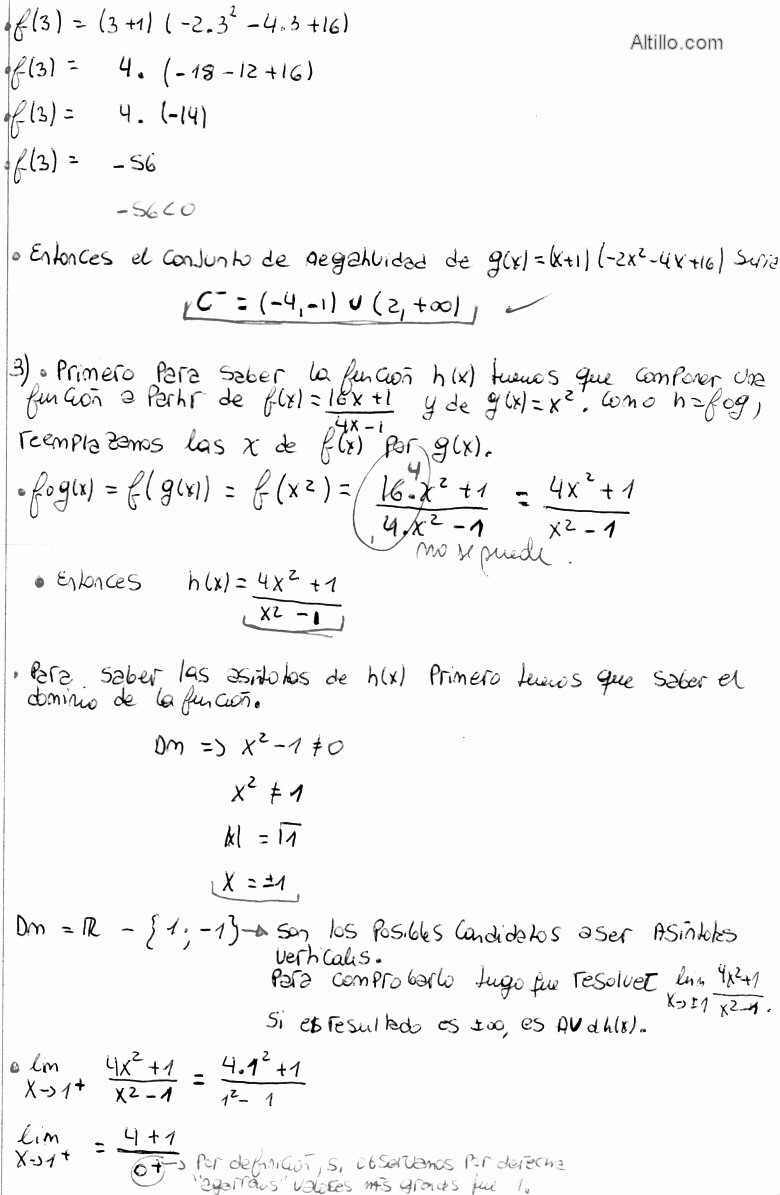 • f(3) = (3+1) (-2.3² - 4.3 + 16)
Altillo.com
• f(3) = 4. (-18 - 12 + 16)
• f(3) = 4. (-14)
• f(3) = -56
-56<0
• Entonces el conjunto de negatividad de g(x) = (x+1) (-2x² - 4x + 16) seria
C⁻ = (-4, -1) ∪ (2, +∞) ✓
3) • Primero para saber la función h(x) tenemos que componer una
función a partir de f(x) = (16x + 1)/(4x - 1) y de g(x) = x². Como h = fog,
reemplazamos las x de f(x) por g(x).
• fog(x) = f(g(x)) = f(x²) = (16.x² + 1)/(4.x² - 1) = (4x² + 1)/(x² - 1)
4
no se puede.
• Entonces h(x) = (4x² + 1)/(x² - 1)
• Para saber las asíntotas de h(x) primero tenemos que saber el
dominio de la función.
Dm => x² - 1 ≠ 0
x² ≠ 1
|x| = √1
x = ±1
Dm = ℝ - {1; -1} → son los posibles candidatos a ser Asíntotas
verticales.
Para comprobarlo tengo que resolver lim x→±1 (4x²+1)/(x²-1).
Si el resultado es ±∞, es AV d h(x).
• lim x→1⁺ (4x² + 1)/(x² - 1) = (4.1² + 1)/(1² - 1)
lim x→1⁺ = (4 + 1)/0⁺ → Por definición, si observamos por derecha
"agarramos" valores más grandes que 1.